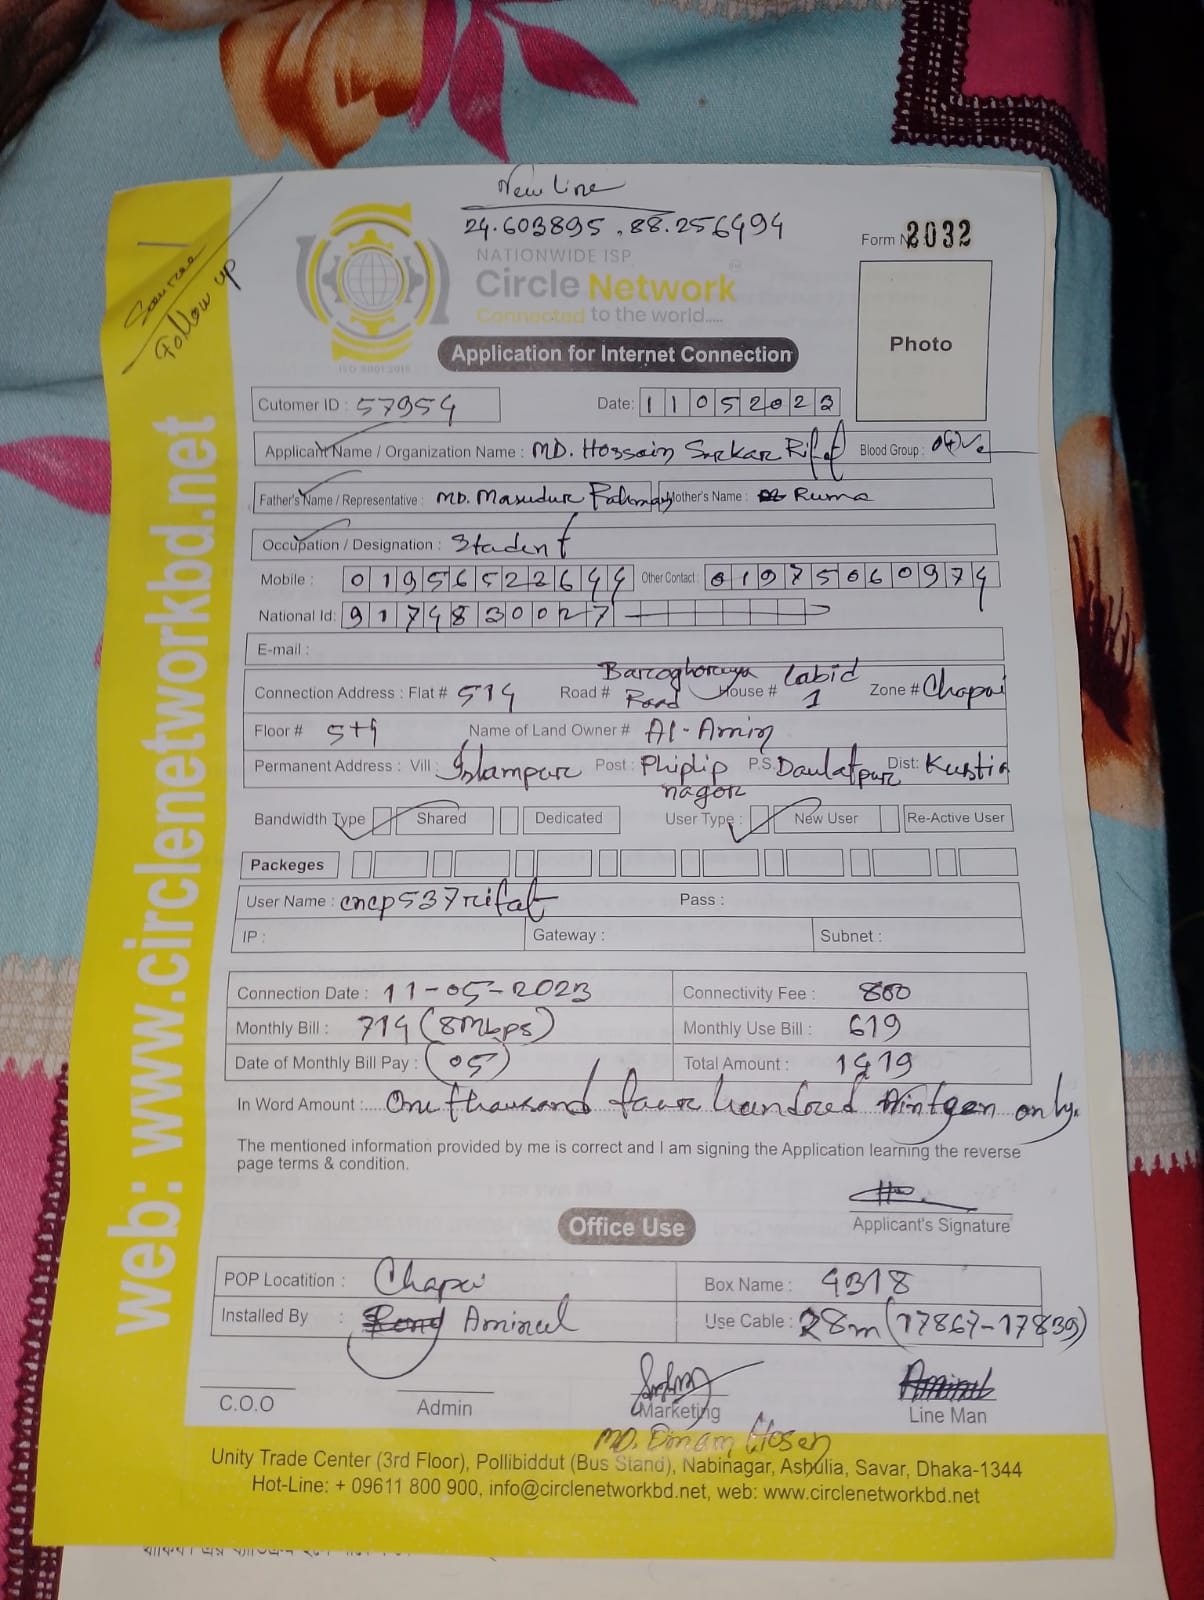 New Line
24.603895, 88.256494
Source
Follow up
NATIONWIDE ISP
Circle Network
Connected to the world.....
ISO 9001:2015
Form No 2032
Photo
Application for Internet Connection
Cutomer ID : 57954 Date: 11052023
Applicant Name / Organization Name : MD. Hossain Sarkar Rifat Blood Group : O(+)ve
Father's Name / Representative : MD. Masudur Rahman Mother's Name : Ruma
Occupation / Designation : Student
Mobile : 01956522644 Other Contact : 01975060974
National Id: 9174830027
E-mail :
Connection Address : Flat # 514 Road # Baroghoruya Road House # Labid 1 Zone # Chapai
Floor # 5th Name of Land Owner # Al-Amin
Permanent Address : Vill : Islampur Post : Philip nagor P.S. Daulatpur Dist: Kustia
Bandwidth Type Shared Dedicated User Type : New User Re-Active User
Packeges
User Name : cncp537rifat Pass :
IP : Gateway : Subnet :
Connection Date : 11-05-2023 Connectivity Fee : 800
Monthly Bill : 714 (8Mbps) Monthly Use Bill : 619
Date of Monthly Bill Pay : (05) Total Amount : 1419
In Word Amount :.... One thousand four handored Nintgen only.
The mentioned information provided by me is correct and I am signing the Application learning the reverse
page terms & condition.
Applicant's Signature
Office Use
POP Locatition : Chapai Box Name : 4318
Installed By : Aminul Use Cable : 28m (17867-17839)
C.O.O Admin Marketing Line Man
MD. Emam Hosen
Unity Trade Center (3rd Floor), Pollibiddut (Bus Stand), Nabinagar, Ashulia, Savar, Dhaka-1344
Hot-Line: + 09611 800 900, info@circlenetworkbd.net, web: www.circlenetworkbd.net
web: www.circlenetworkbd.net